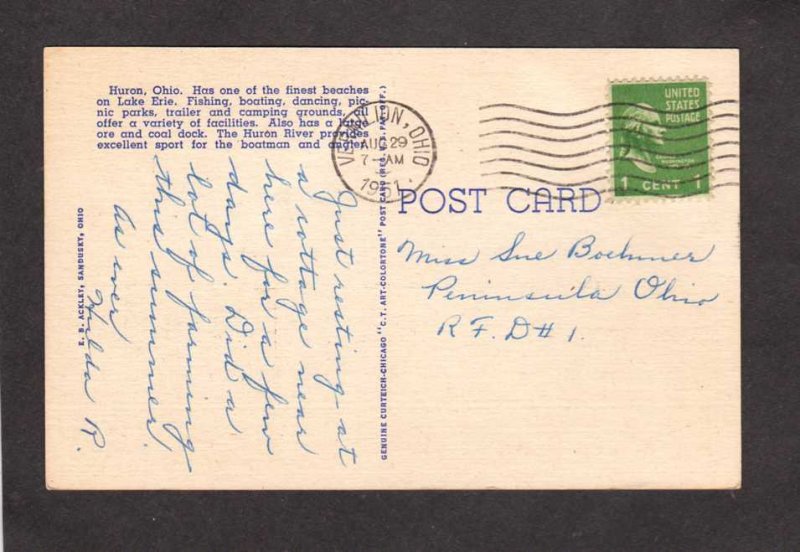 Huron, Ohio. Has one of the finest beaches
on Lake Erie. Fishing, boating, dancing, pic-
nic parks, trailer and camping grounds, all
offer a variety of facilities. Also has a large
ore and coal dock. The Huron River provides
excellent sport for the boatman and angler.
VERMILION, OHIO
AUG 29
7-AM
1951
UNITED
STATES
POSTAGE
1 CENT 1
POST CARD
Miss Sue Boehmer
Peninsula Ohio
R.F.D#1.
Just resting at
a cottage near
here for a few
days. Did a
lot of farming
this summer.
As ever
Hilda R.
E. B. ACKLEY, SANDUSKY, OHIO
GENUINE CURTEICH-CHICAGO "C.T. ART-COLORTONE" POST CARD (REG. U.S. PAT. OFF.)